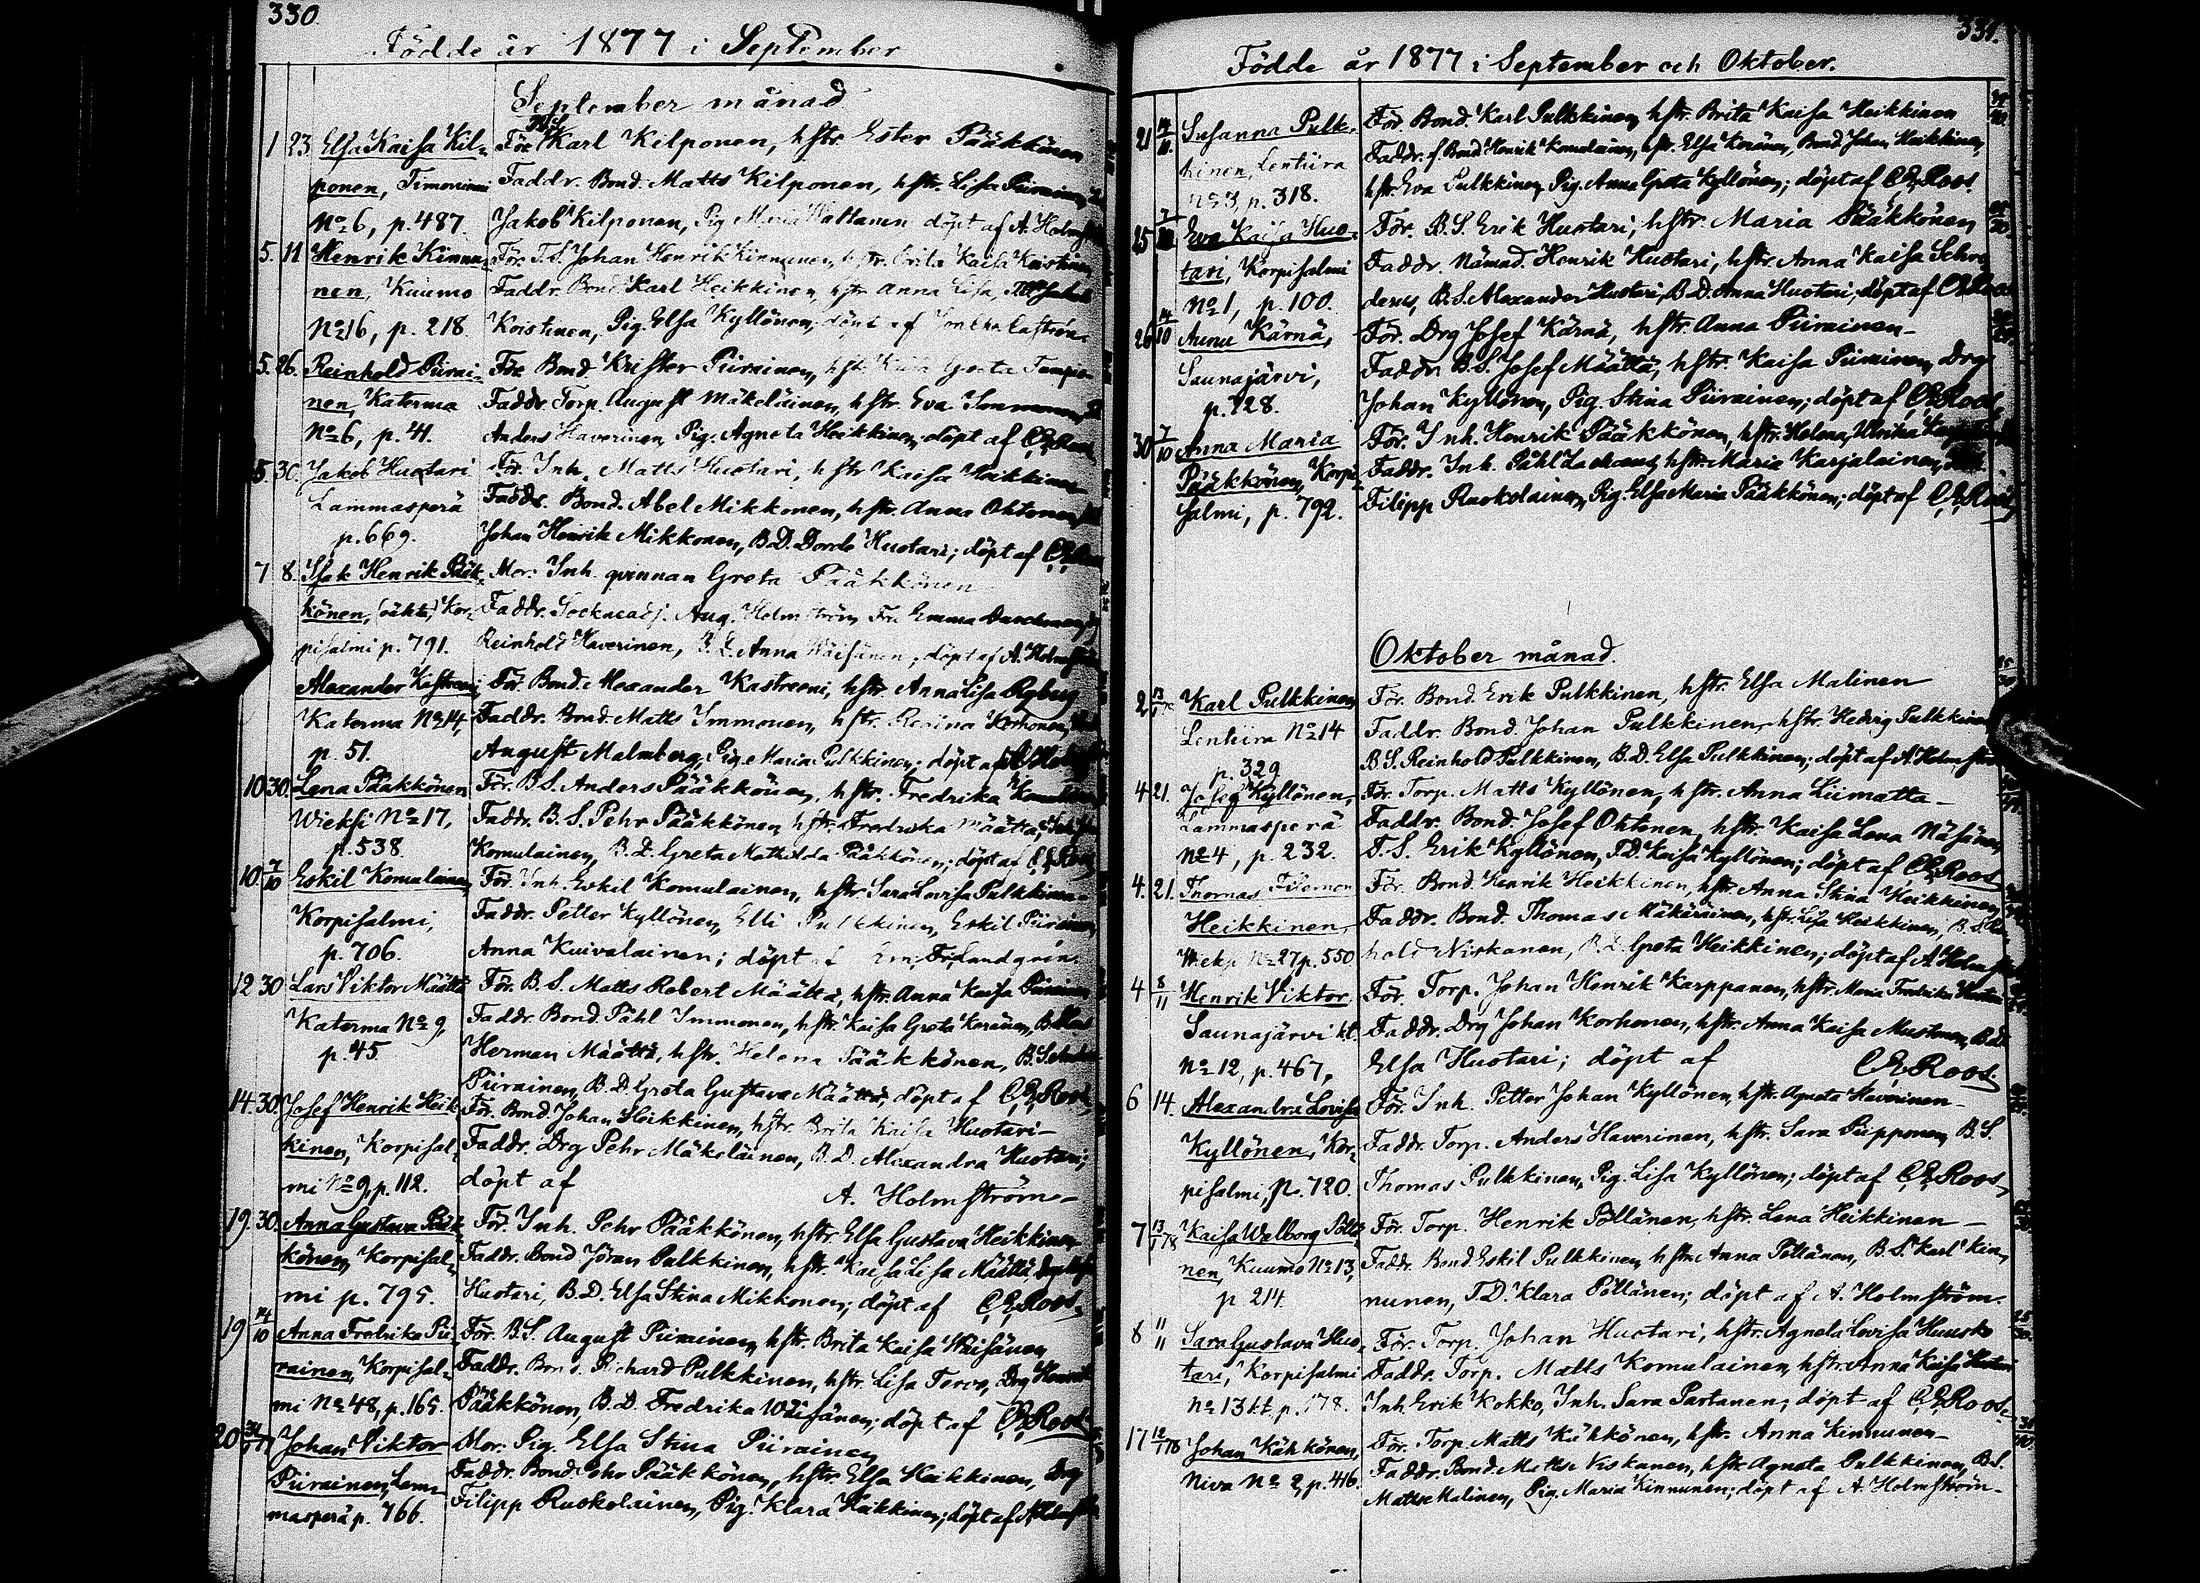 330.
Födde år 1877 i September
September månad
1 23 Elsa Kaisa Kil- För. Karl Kilponen, hstr. Ester Pääkkönen
ponen, Timoniemi Faddr. Bond. Matts Kilponen, hstr. Lisa Piirainen,
No 6, p. 487. Jakob Kilponen, Pig döpt af A. Holmström
5. 11 Henrik Kinnu- För. T.S. Johan Henrik Kinnunen, hstr. Brita Kaisa Koistinen
nen, Kuumo Faddr. Bond. Karl Heikkinen, hstr. Anna Lisa,
No 16, p. 218 Koistinen, Pig. Elsa Kyllönen, döpt af
5. 26. Reinhold Piirai- För. Bond Krister Piirainen, hstr. Greta
nen, Katerma Faddr. Torp. August Mäkeläinen, hstr. Eva Immonen,
No 6, p. 41. Anders Haverinen, Pig. Agneta Heikkinen, döpt af C.E. Roos
5 30. Jakob Huotari För. Inh. Matts Huotari, hstr Kaisa Heikkinen
Lammasperä Faddr. Bond. Abel Mikkonen, hstr. Anna Ohtonen,
p. 669. Johan Henrik Mikkonen, B.D. Huotari; döpt af C.E. Roos
7 8. Isak Henrik Pääk- Mor. Inh. qvinnan Greta Pääkkönen
könen, (oäkta) Kor- Faddr. Sockneadj. Aug. Holmström, Fr. Emma
pisalmi p. 791. Reinhold Haverinen, B.D. Anna Wäisänen, döpt af A. Holmström
Alexander Kastreeni, För. Bond. Alexander Kastreeni, hstr Anna Lisa Ryberg
Katerma No 14, Faddr. Bond. Matts Immonen, hstr. Regina Korhonen,
p. 51. August Malmberg, Pig. Maria Pulkkinen; döpt af A. Holmström
10 30. Lena Pääkkönen För. B.S. Anders Pääkkönen, hstr. Fredrika Komulainen
Wieksi No 17, Faddr. B.S. Pehr Pääkkönen, hstr. Fredrika Määttä,
p. 538. Komulainen, B.D. Greta Mathilda Pääkkönen; döpt af C.E. Roos
10 7/10 Eskil Komulainen För. Inh. Eskil Komulainen, hstr Sara Lovisa Pulkkinen
Korpisalmi, Faddr. Petter Kyllönen, Elli Pulkkinen, Eskil Piirainen
p. 706. Anna Kuivalainen; döpt af
12 30 Lars Viktor Määttä För. B.S. Matts Robert Määttä, hstr. Anna Kaisa Piirainen
Katerma No 9, Faddr. Bond. Påhl Immonen, hstr. Kaisa Greta Keränen,
p. 45 Herman Määttä, hstr. Helena Pääkkönen, B.S.
Piirainen, B.D. Greta Gustava Määttä, döpt af C.E. Roos
14. 30. Josef Henrik Heik- För. Bond Johan Heikkinen, hstr. Brita Kaisa Huotari-
kinen, Korpisal- Faddr. Drg Pehr Mäkeläinen, B.D. Alexandra Huotari;
mi No 9, p. 112. döpt af A. Holmström-
19. 30. Anna Gustava Pääk- För. Inh. Pehr Pääkkönen, hstr Elsa Gustava Heikkinen
könen, Korpisal- Faddr. Bond Jöran Pulkkinen, hstr. Kaisa Lisa Määttä,
mi p. 795. Huotari, B.D. Elsa Stina Mikkonen; döpt af C.E. Roos
19 14/10 Anna Fredrika Pii- För. B.S. August Piirainen, hstr. Brita Kaisa Wäisänen
rainen, Korpisal- Faddr. Bond. Richard Pulkkinen, hstr. Lisa Torvo, Drg Henrik
mi No 48, p. 165. Pääkkönen, B.D. Fredrika Wäisänen; döpt af C.E. Roos
20 Johan Viktor Mor. Pig. Elsa Stina Piirainen
Piirainen, Lam- Faddr. Bond Pehr Pääkkönen, hstr. Elsa Heikkinen, Drg
masperä p. 766. Filipp Ruokolainen, Pig. Klara Heikkinen; döpt af A. Holmström
331.
Födde år 1877 i September och Oktober.
21 14/10. Susanna Pulk- För. Bond. Karl Pulkkinen, hstr. Brita Kaisa Heikkinen
kinen, Lentiira Faddr. f. Bond Henrik Komulainen, hstr. Elsa Keränen, Bond. Johan Heikkinen,
No 3, p. 318. hstr. Eva Pulkkinen, Pig. Anna Greta Kyllönen; döpt af C.E. Roos
25 7/10 Eva Kaisa Huo- För. B.S. Erik Huotari, hstr. Maria Pääkkönen,
tari, Korpisalmi Faddr. Nämnd. Henrik Huotari, hstr. Anna Kaisa Schro
No 1, p. 100. derus, B.S. Alexander Huotari, B.D. Anna Huotari, döpt af C.E. Roos
26 14/10 Aunu Kärnä, För. Drg Josef Kärnä, hstr. Anna Piirainen-
Saunajärvi, Faddr. B.S. Josef Määttä, hstr. Kaisa Piirainen, Drg
p. 728. Johan Kyllönen, Pig. Stina Piirainen; döpt af C.E. Roos
30 7/10 Anna Maria För. Inh. Henrik Pääkkönen, hstr. Helena Ulrika
Pääkkönen, Korpi- Faddr. Inh. Påhl hstr. Maria Karjalainen,
salmi, p. 792. Filipp Ruokolainen, Pig. Elsa Maria Pääkkönen; döpt af C.E. Roos
Oktober månad.
2 Karl Pulkkinen, För. Bond. Erik Pulkkinen, hstr. Elsa Malinen
Lentiira No 14 Faddr. Bond. Johan Pulkkinen, hstr. Hedvig Pulkkinen,
p. 329 B.S. Reinhold Pulkkinen, B.D. Elsa Pulkkinen; döpt af A. Holmström
4 21. Josef Kyllönen, För. Torp. Matts Kyllönen, hstr. Anna Liimatta-
Lammasperä Faddr. Bond. Josef Ohtonen, hstr. Kaisa Lena Näsänen,
No 4, p. 232. T.S. Erik Kyllönen, T.D. Kaisa Kyllönen; döpt af C.E. Roos
4. 21. Thomas Filemon För. Bond. Henrik Heikkinen, hstr. Anna Stina Heikkinen,
Heikkinen, Faddr. Bond. Thomas Mäkäräinen, hstr. Lisa Heikkinen, B.S. Rein-
Wieksi No 27 p. 550 hold Niskanen, B.D. Greta Heikkinen; döpt af A. Holmström
4 8/11 Henrik Viktor, För. Torp. Johan Henrik Karppanen, hstr. Maria Fredrika Huotari
Saunajärvi kt. Faddr. Drg Johan Korhonen, hstr. Anna Kaisa Mustonen, B.D.
No 12, p. 467, Elsa Huotari; döpt af C.E. Roos
6 14. Alexandra Lovisa För. Inh. Petter Johan Kyllönen, hstr. Agneta Haverinen-
Kyllönen, Kor- Faddr. Torp. Anders Haverinen, hstr. Sara Piipponen, B.S.
pisalmi, p. 720. Thomas Pulkkinen, Pig. Lisa Kyllönen; döpt af C.E. Roos
7 13/1 78 Kaisa Walborg Pöllä- För. Torp. Henrik Pöllänen, hstr. Lena Heikkinen-
nen, Kuumo No 13, Faddr. Bond. Eskil Pulkkinen, hstr. Anna Pöllänen, B.S. Karl Kin-
p 214. nunen, T.D. Klara Pöllänen; döpt af A. Holmström.
8 11/11 Sara Gustava Huo- För. Torp. Johan Huotari, hstr. Agneta Lovisa Huusko
tari, Korpisalmi Faddr. Torp. Matts Komulainen, hstr. Anna Kaisa Huotari
No 13 kt. p. 178. Inh. Erik Kokko, Inh. Sara Partanen; döpt af C.E. Roos
17 Johan Kähkönen, För. Torp. Matts Kähkönen, hstr. Anna Kinnunen-
Niva No 2, p. 416. Faddr. Bond. Matts Niskanen, hstr. Agneta Pulkkinen, B.S.
Matts Malinen, Pig. Maria Kinnunen; döpt af A. Holmström-